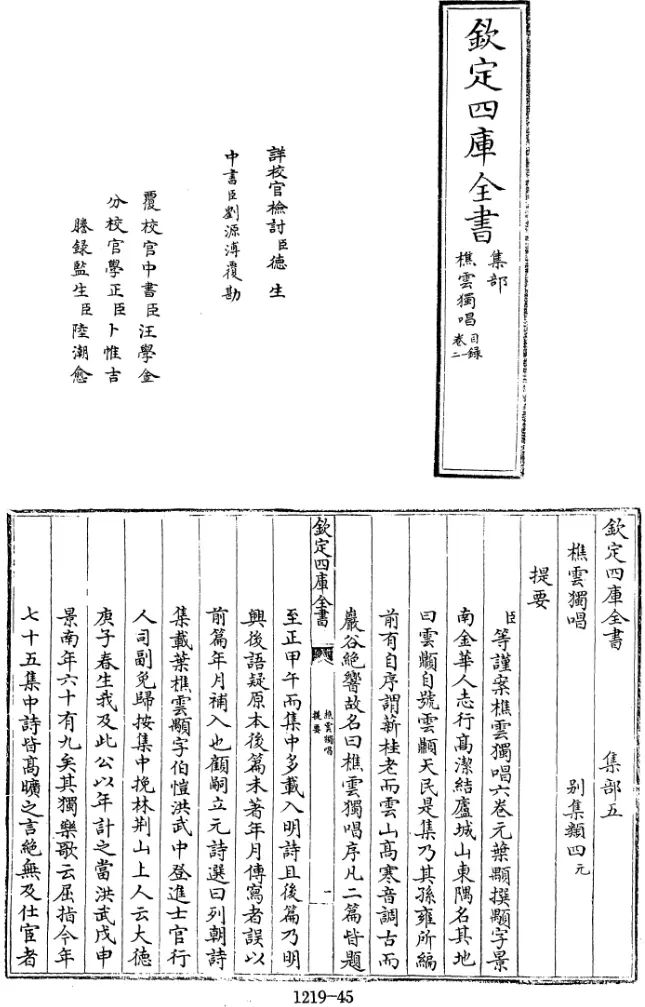 欽定四庫全書
集部
樵雲獨唱
目錄
卷一
二
詳校官檢討臣德生
中書臣劉源溥覆勘
覆校官中書臣汪學金
分校官學正臣卜惟吉
謄錄監生臣陸潮愈
欽定四庫全書 集部五
樵雲獨唱 別集類四元
提要
臣等謹案樵雲獨唱六卷元葉顒撰顒字景
南金華人志行高潔結廬城山東隅名其地
曰雲顚自號雲顚天民是集乃其孫雍所編
前有自序謂薪桂老而雲山高寒音調古而
巖谷絕響故名曰樵雲獨唱序凡二篇皆題
欽定四庫全書
樵雲獨唱
提要
一
至正甲午而集中多載入明詩且後篇乃明
興後語疑原本後篇未著年月傳寫者誤以
前篇年月補入也顧嗣立元詩選曰列朝詩
集載葉樵雲顒字伯愷洪武中登進士官行
人司副免歸按集中挽林荆山上人云大德
庚子春生我及此公以年計之當洪武戊申
景南年六十有九矣其獨樂歌云屈指今年
七十五集中詩皆高曠之言絕無及仕宦者
1219-45